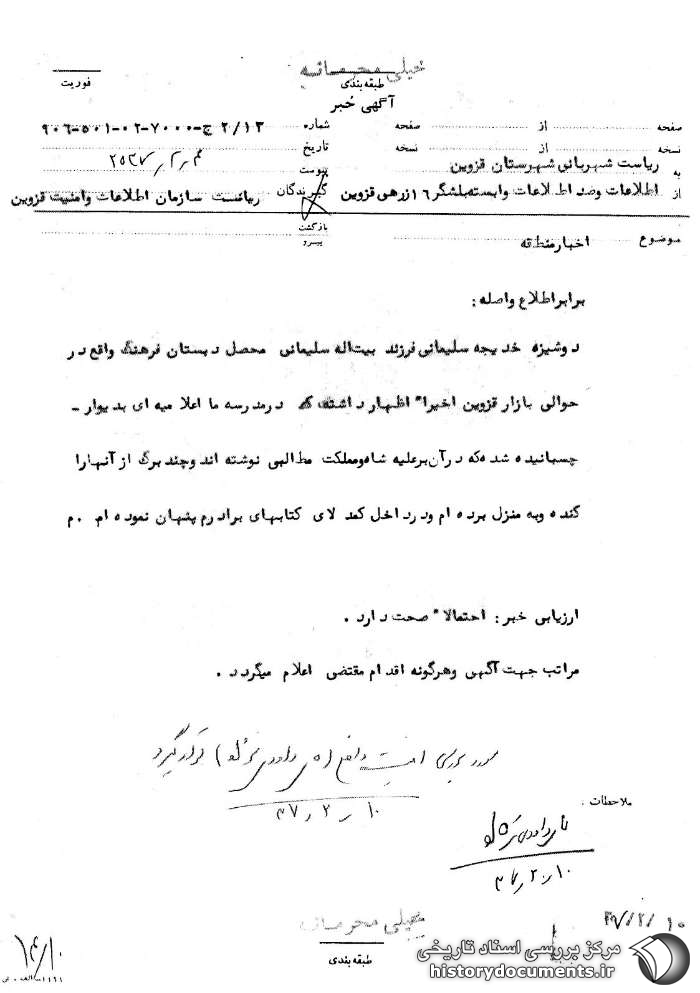 خیلی محرمانه
طبقه‌بندی
فوریت
آگهی خبر
صفحه از صفحه شماره ۲/۱۳ ج-۷۰۰۰-۰۲-۵۰۱-۹۰۶
نسخه از نسخه تاریخ
به ریاست شهربانی شهرستان قزوین پیوست
از اطلاعات وضد اطلاعات وابسته بلشگر ۱۶ زرهی قزوین گیرندگان ریاست سازمان اطلاعات وامنیت قزوین
موضوع اخبار منطقه بازگشت
پیرو
برابر اطلاع واصله :
دوشیزه خدیجه سلیمانی فرزند بیت‌اله سلیمانی محصل دبستان فرهنگ واقع در
حوالی بازار قزوین اخیرا" اظهار داشته که در مدرسه ما اعلامیه ای بدیوار -
چسبانیده شده که در آن بر علیه شاه و مملکت مطالبی نوشته اند و چند برگ از آنها را
کنده و به منزل برده ام و در داخل کمد لای کتابهای برادرم پنهان نموده ام . م
ارزیابی خبر : احتمالا" صحت دارد .
مراتب جهت آگهی و هرگونه اقدام مقتضی اعلام میگردد .
قرار گیرد
۱۰ ر ۲ ر ۳۷
ملاحظات :
۱۰ ر ۲ ر ۳۷
۳۷/۲/۱۰
خیلی محرمانه
طبقه‌بندی
۱۴/۱۰
مرکز بررسی اسناد تاریخی
historydocuments.ir